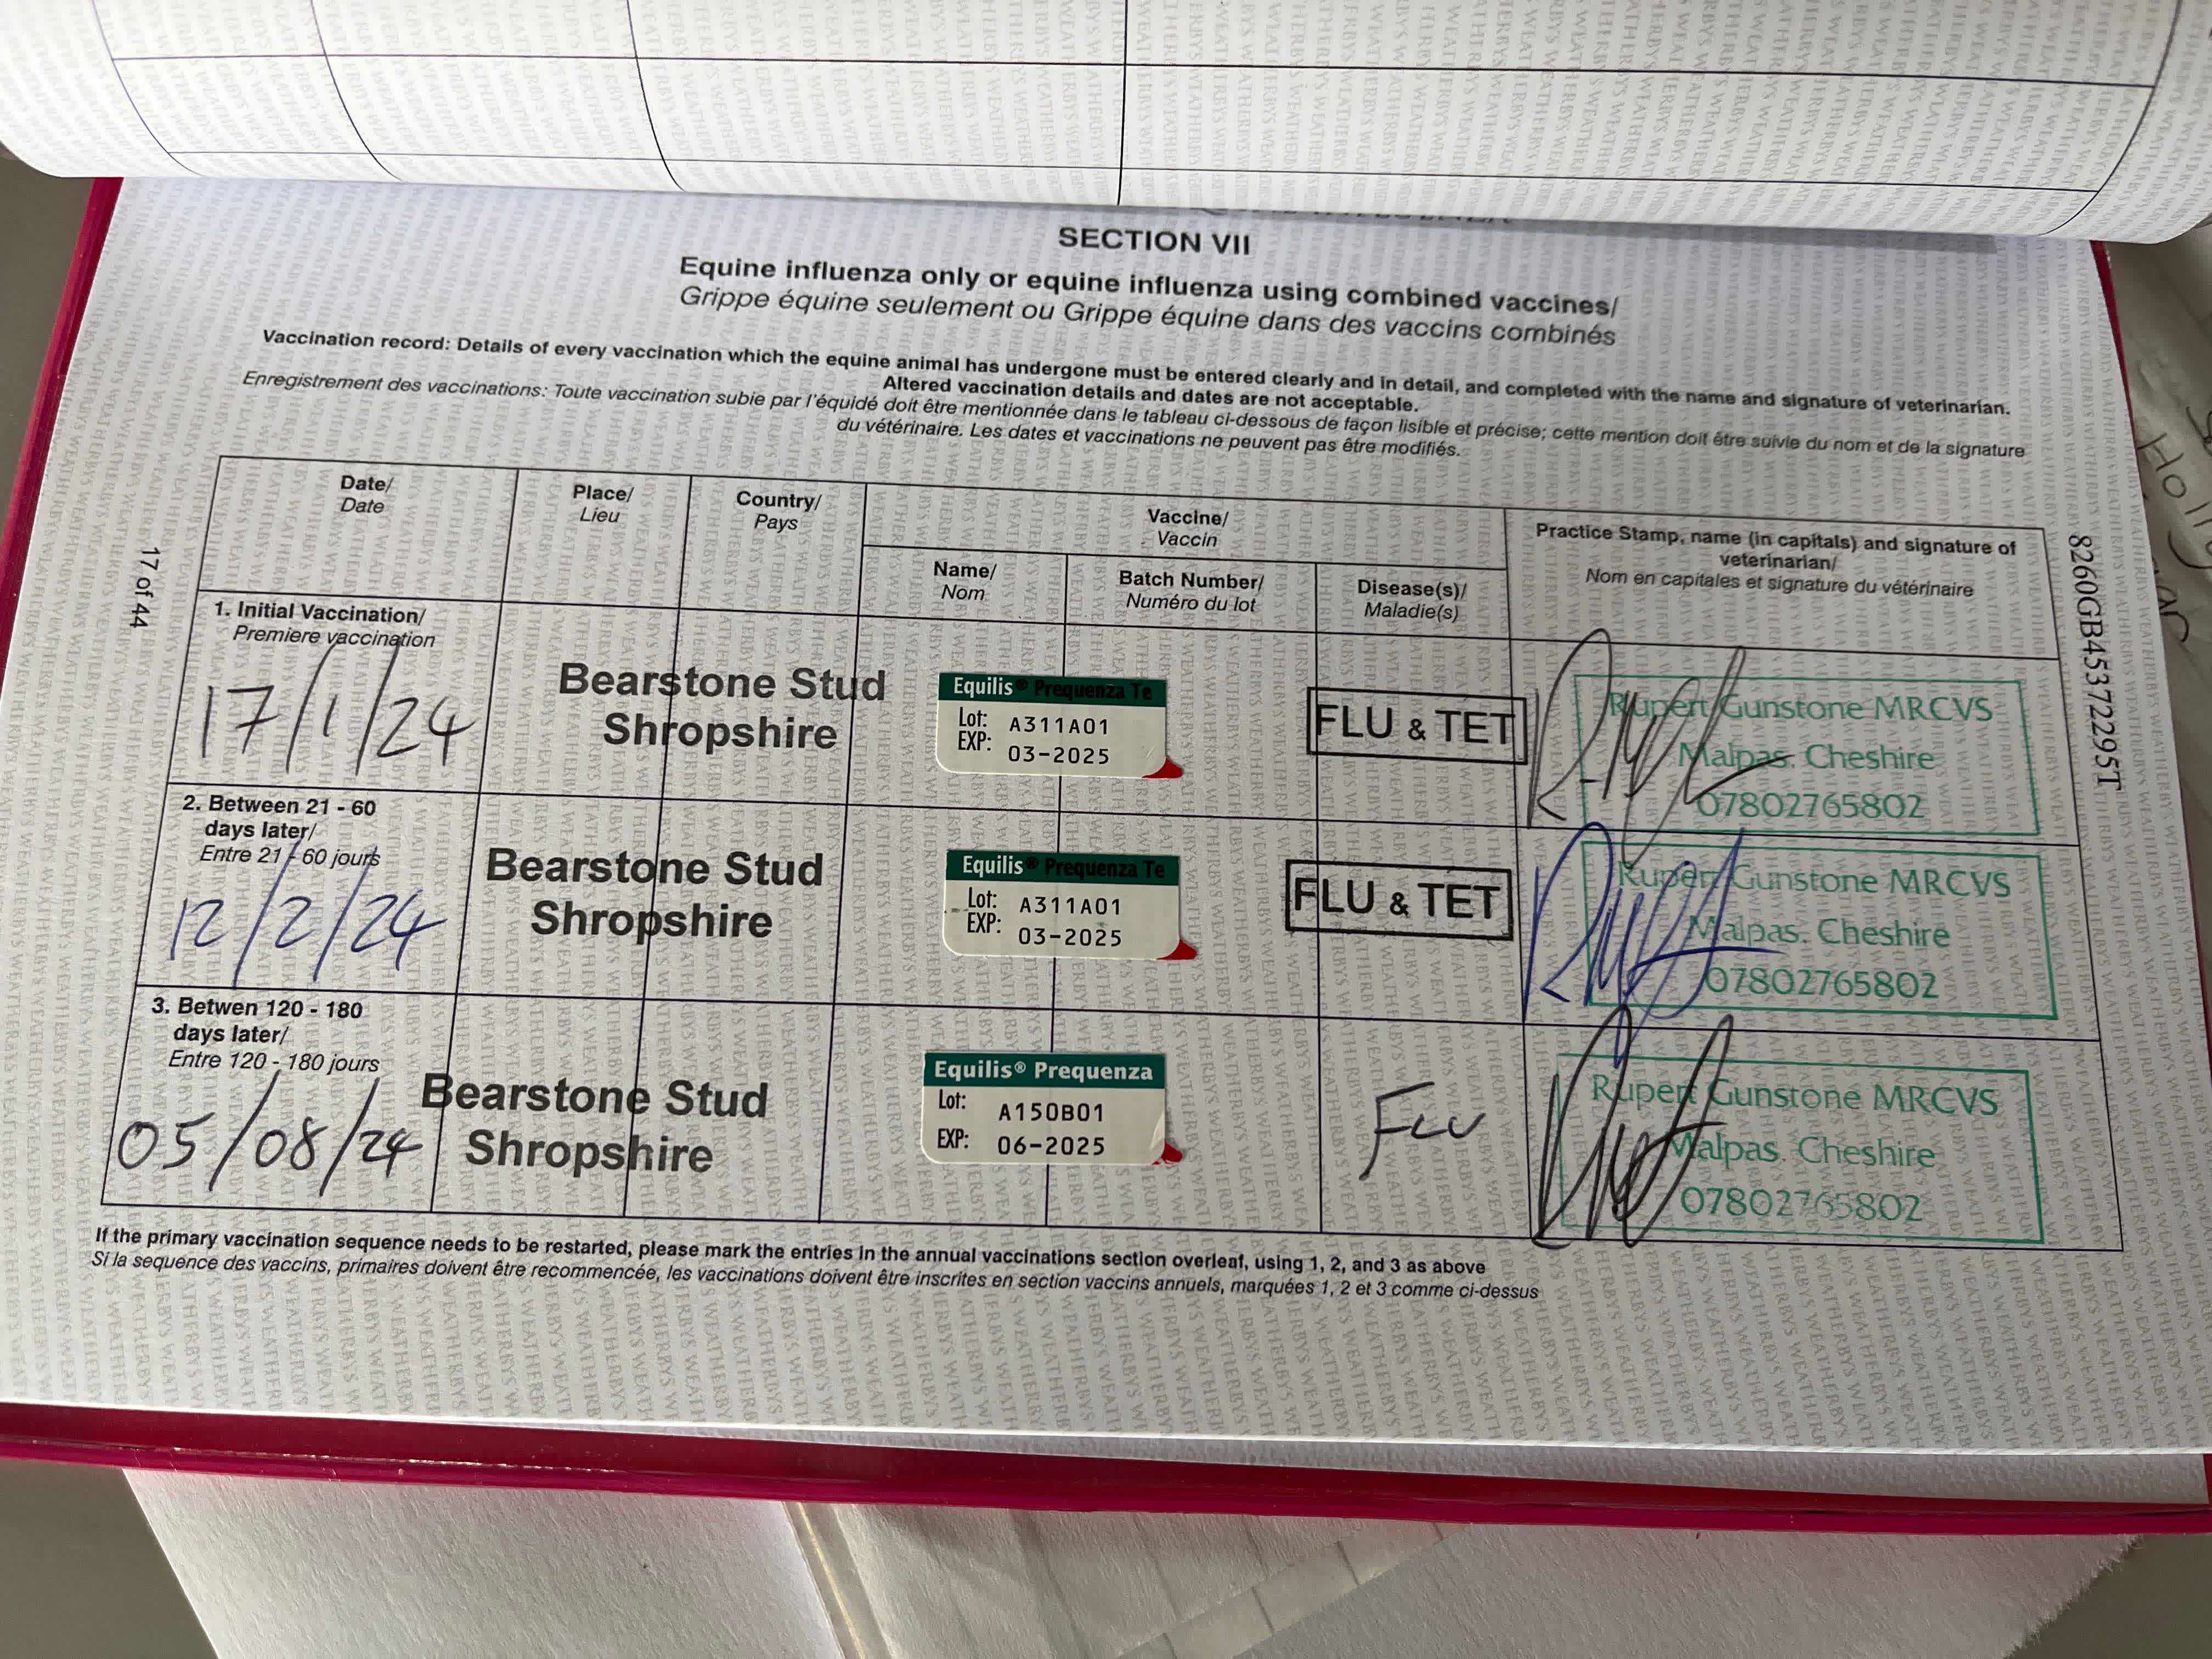 SECTION VII
Equine influenza only or equine influenza using combined vaccines/
Grippe équine seulement ou Grippe équine dans des vaccins combinés
Vaccination record: Details of every vaccination which the equine animal has undergone must be entered clearly and in detail, and completed with the name and signature of veterinarian.
Altered vaccination details and dates are not acceptable.
Enregistrement des vaccinations: Toute vaccination subie par l'équidé doit être mentionnée dans le tableau ci-dessous de façon lisible et précise; cette mention doit être suivie du nom et de la signature
du vétérinaire. Les dates et vaccinations ne peuvent pas être modifiés.
17 of 44
8260GB45372295T
Date/
Date
Place/
Lieu
Country/
Pays
Vaccine/
Vaccin
Name/
Nom
Batch Number/
Numéro du lot
Disease(s)/
Maladie(s)
Practice Stamp, name (in capitals) and signature of
veterinarian/
Nom en capitales et signature du vétérinaire
1. Initial Vaccination/
Premiere vaccination
17/1/24
Bearstone Stud
Shropshire
Equilis® Prequenza Te
Lot: A311A01
EXP: 03-2025
FLU & TET
Rupert Gunstone MRCVS
Malpas. Cheshire
07802765802
2. Between 21 - 60
days later/
Entre 21 - 60 jours
12/2/24
Bearstone Stud
Shropshire
Equilis® Prequenza Te
Lot: A311A01
EXP: 03-2025
FLU & TET
Rupert Gunstone MRCVS
Malpas. Cheshire
07802765802
3. Betwen 120 - 180
days later/
Entre 120 - 180 jours
05/08/24
Bearstone Stud
Shropshire
Equilis® Prequenza
Lot: A150B01
EXP: 06-2025
FLU
Rupert Gunstone MRCVS
Malpas. Cheshire
07802765802
If the primary vaccination sequence needs to be restarted, please mark the entries in the annual vaccinations section overleaf, using 1, 2, and 3 as above
Si la sequence des vaccins, primaires doivent être recommencée, les vaccinations doivent être inscrites en section vaccins annuels, marquées 1, 2 et 3 comme ci-dessus